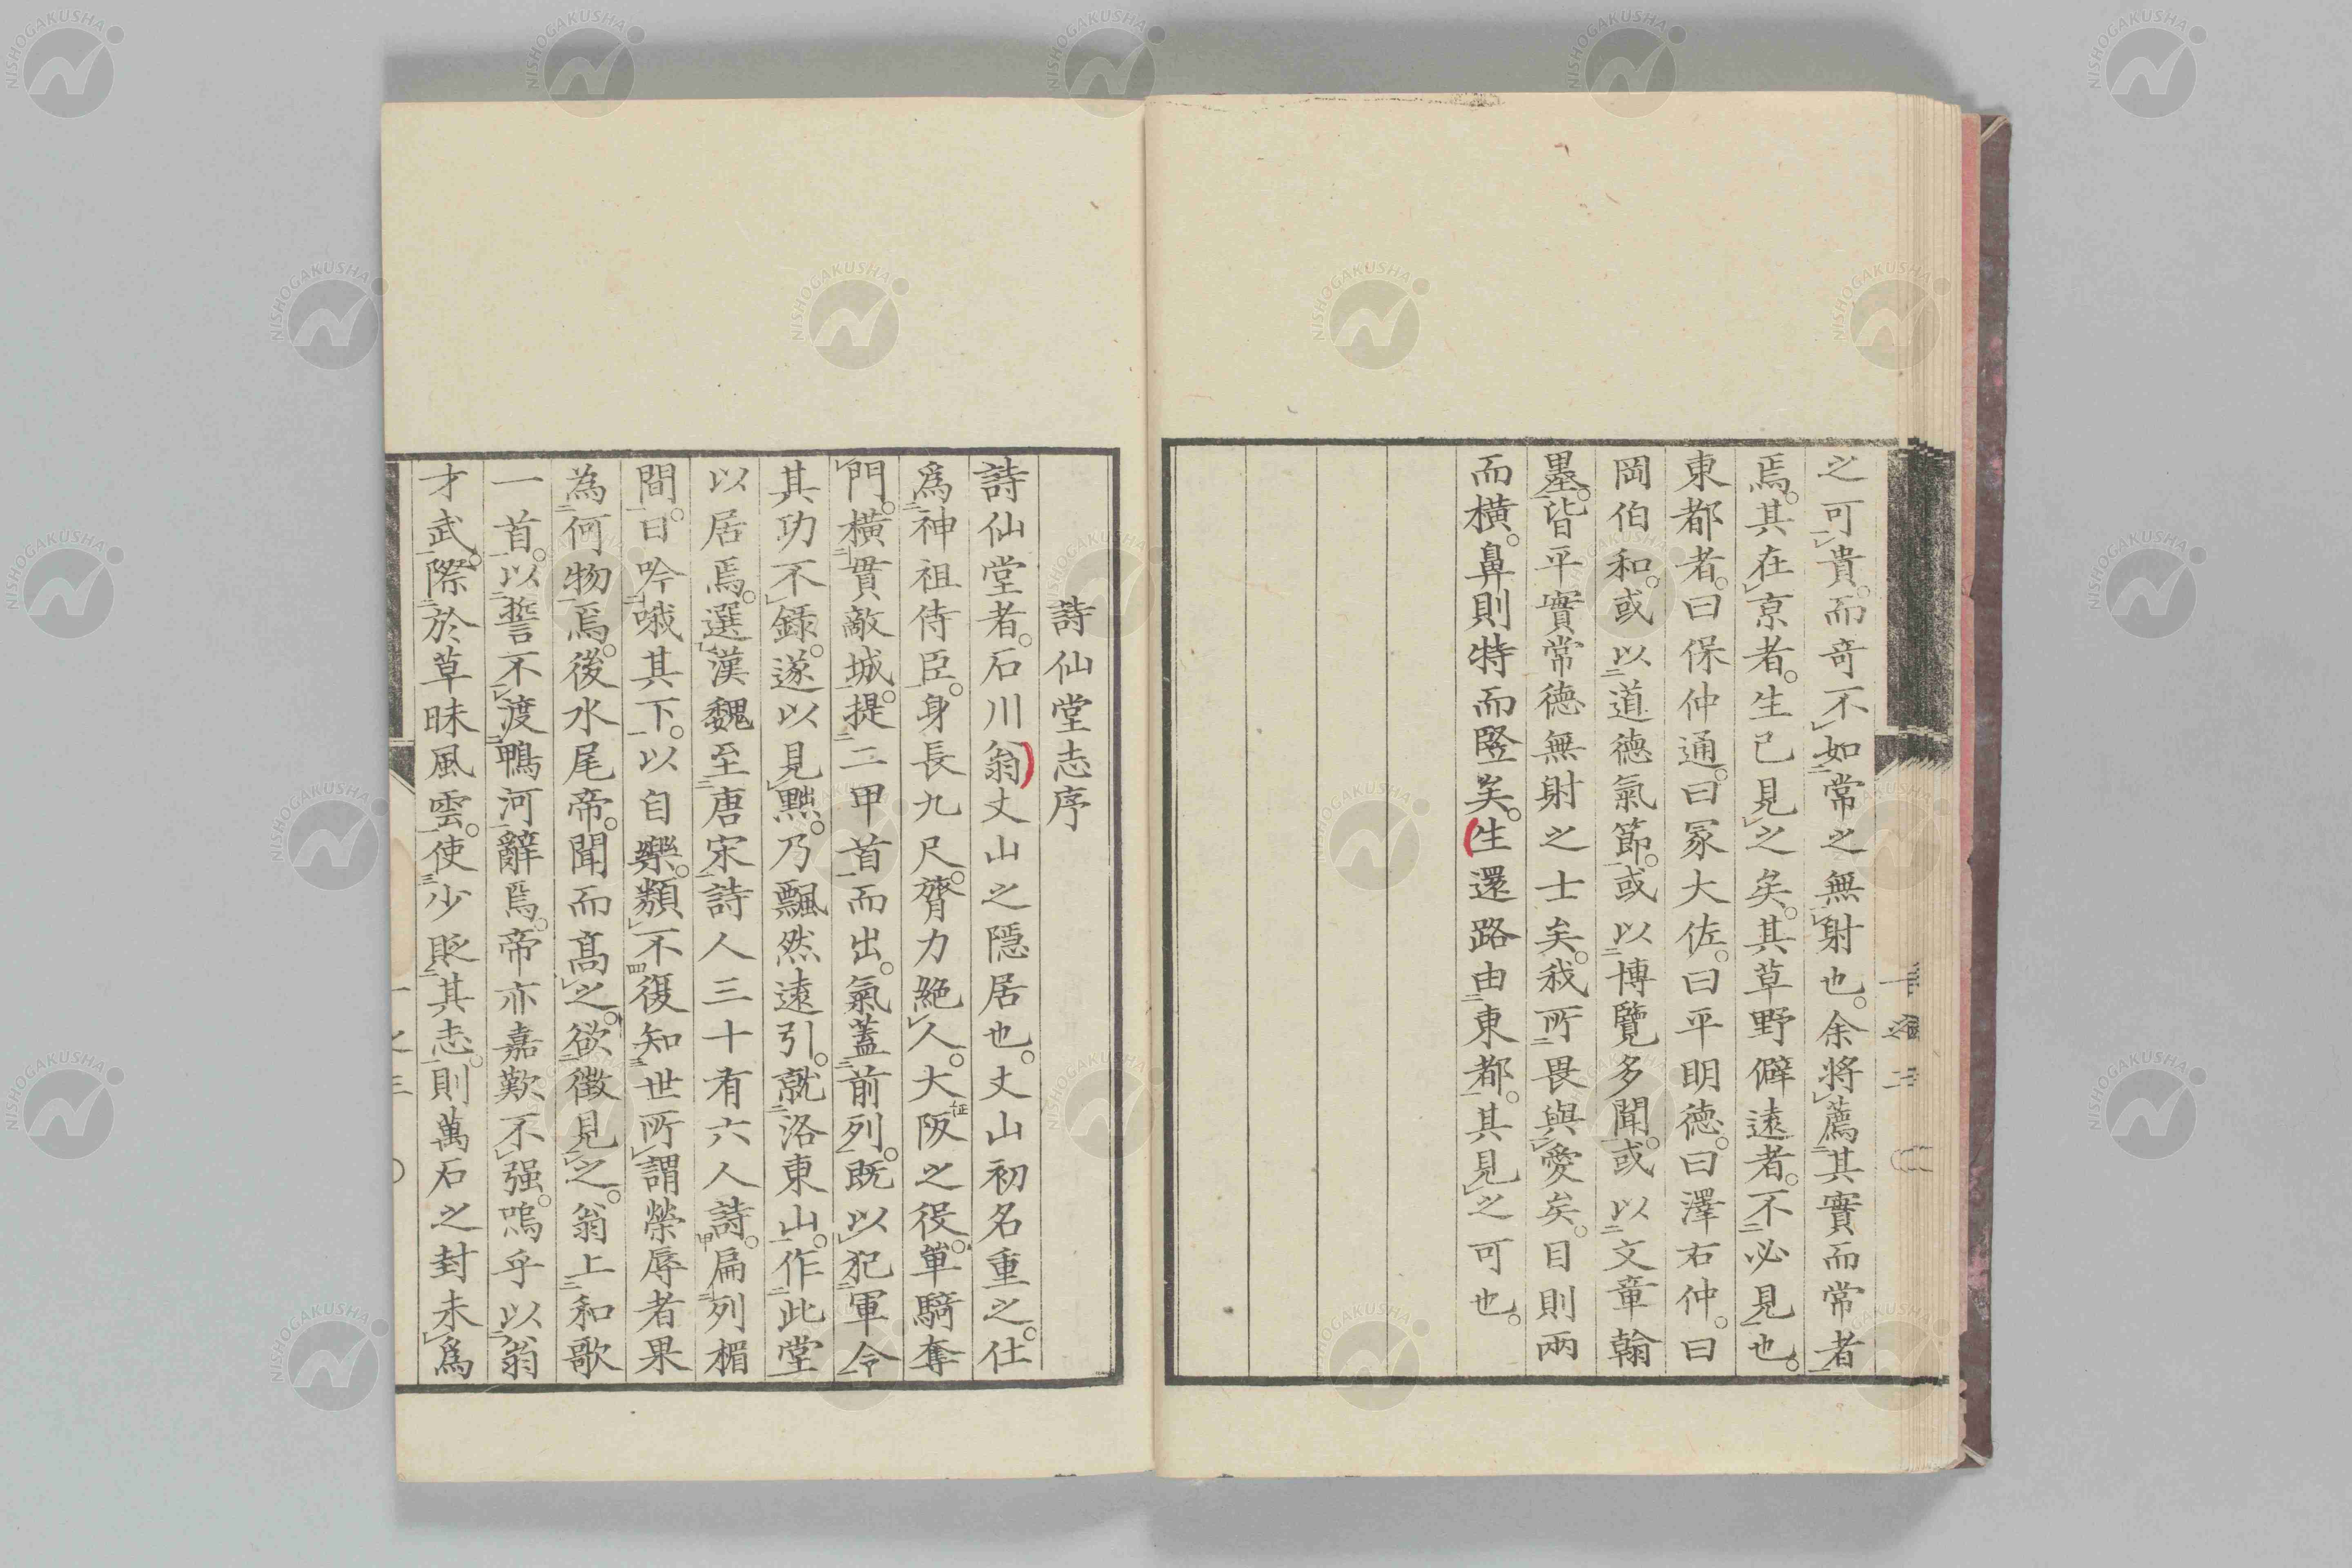 之可貴。而奇不如常之無射也。余將薦其實而常者
焉。其在京者。生已見之矣。其草野僻遠者。不必見也。
東都者。曰保仲通。曰冢大佐。曰平明德。曰澤右仲。曰
岡伯和。或以道德氣節。或以博覽多聞。或以文章翰
墨。皆平實常德無射之士矣。我所畏與愛矣。目則兩
而橫。鼻則特而竪矣。生還路由東都。其見之可也。
詩仙堂志序
詩仙堂者。石川翁丈山之隱居也。丈山初名重之。仕
爲神祖侍臣。身長九尺。膂力絶人。大阪之役。單騎奪
門。橫貫敵城。提二甲首而出。氣蓋前列。既以犯軍令
其功不錄。遂以見黜。乃飄然遠引。就洛東山。作此堂
以居焉。選漢魏至唐宋詩人三十有六人詩。扁列楣
間。日吟哦其下。以自樂。類不復知世所謂榮辱者果
為何物焉。後水尾帝。聞而高之。欲徵見之。翁上和歌
一首。以誓不渡鴨河辭焉。帝亦嘉歎不强。嗚乎以翁
才武。際於草昧風雲。使少貶其志。則萬石之封未爲